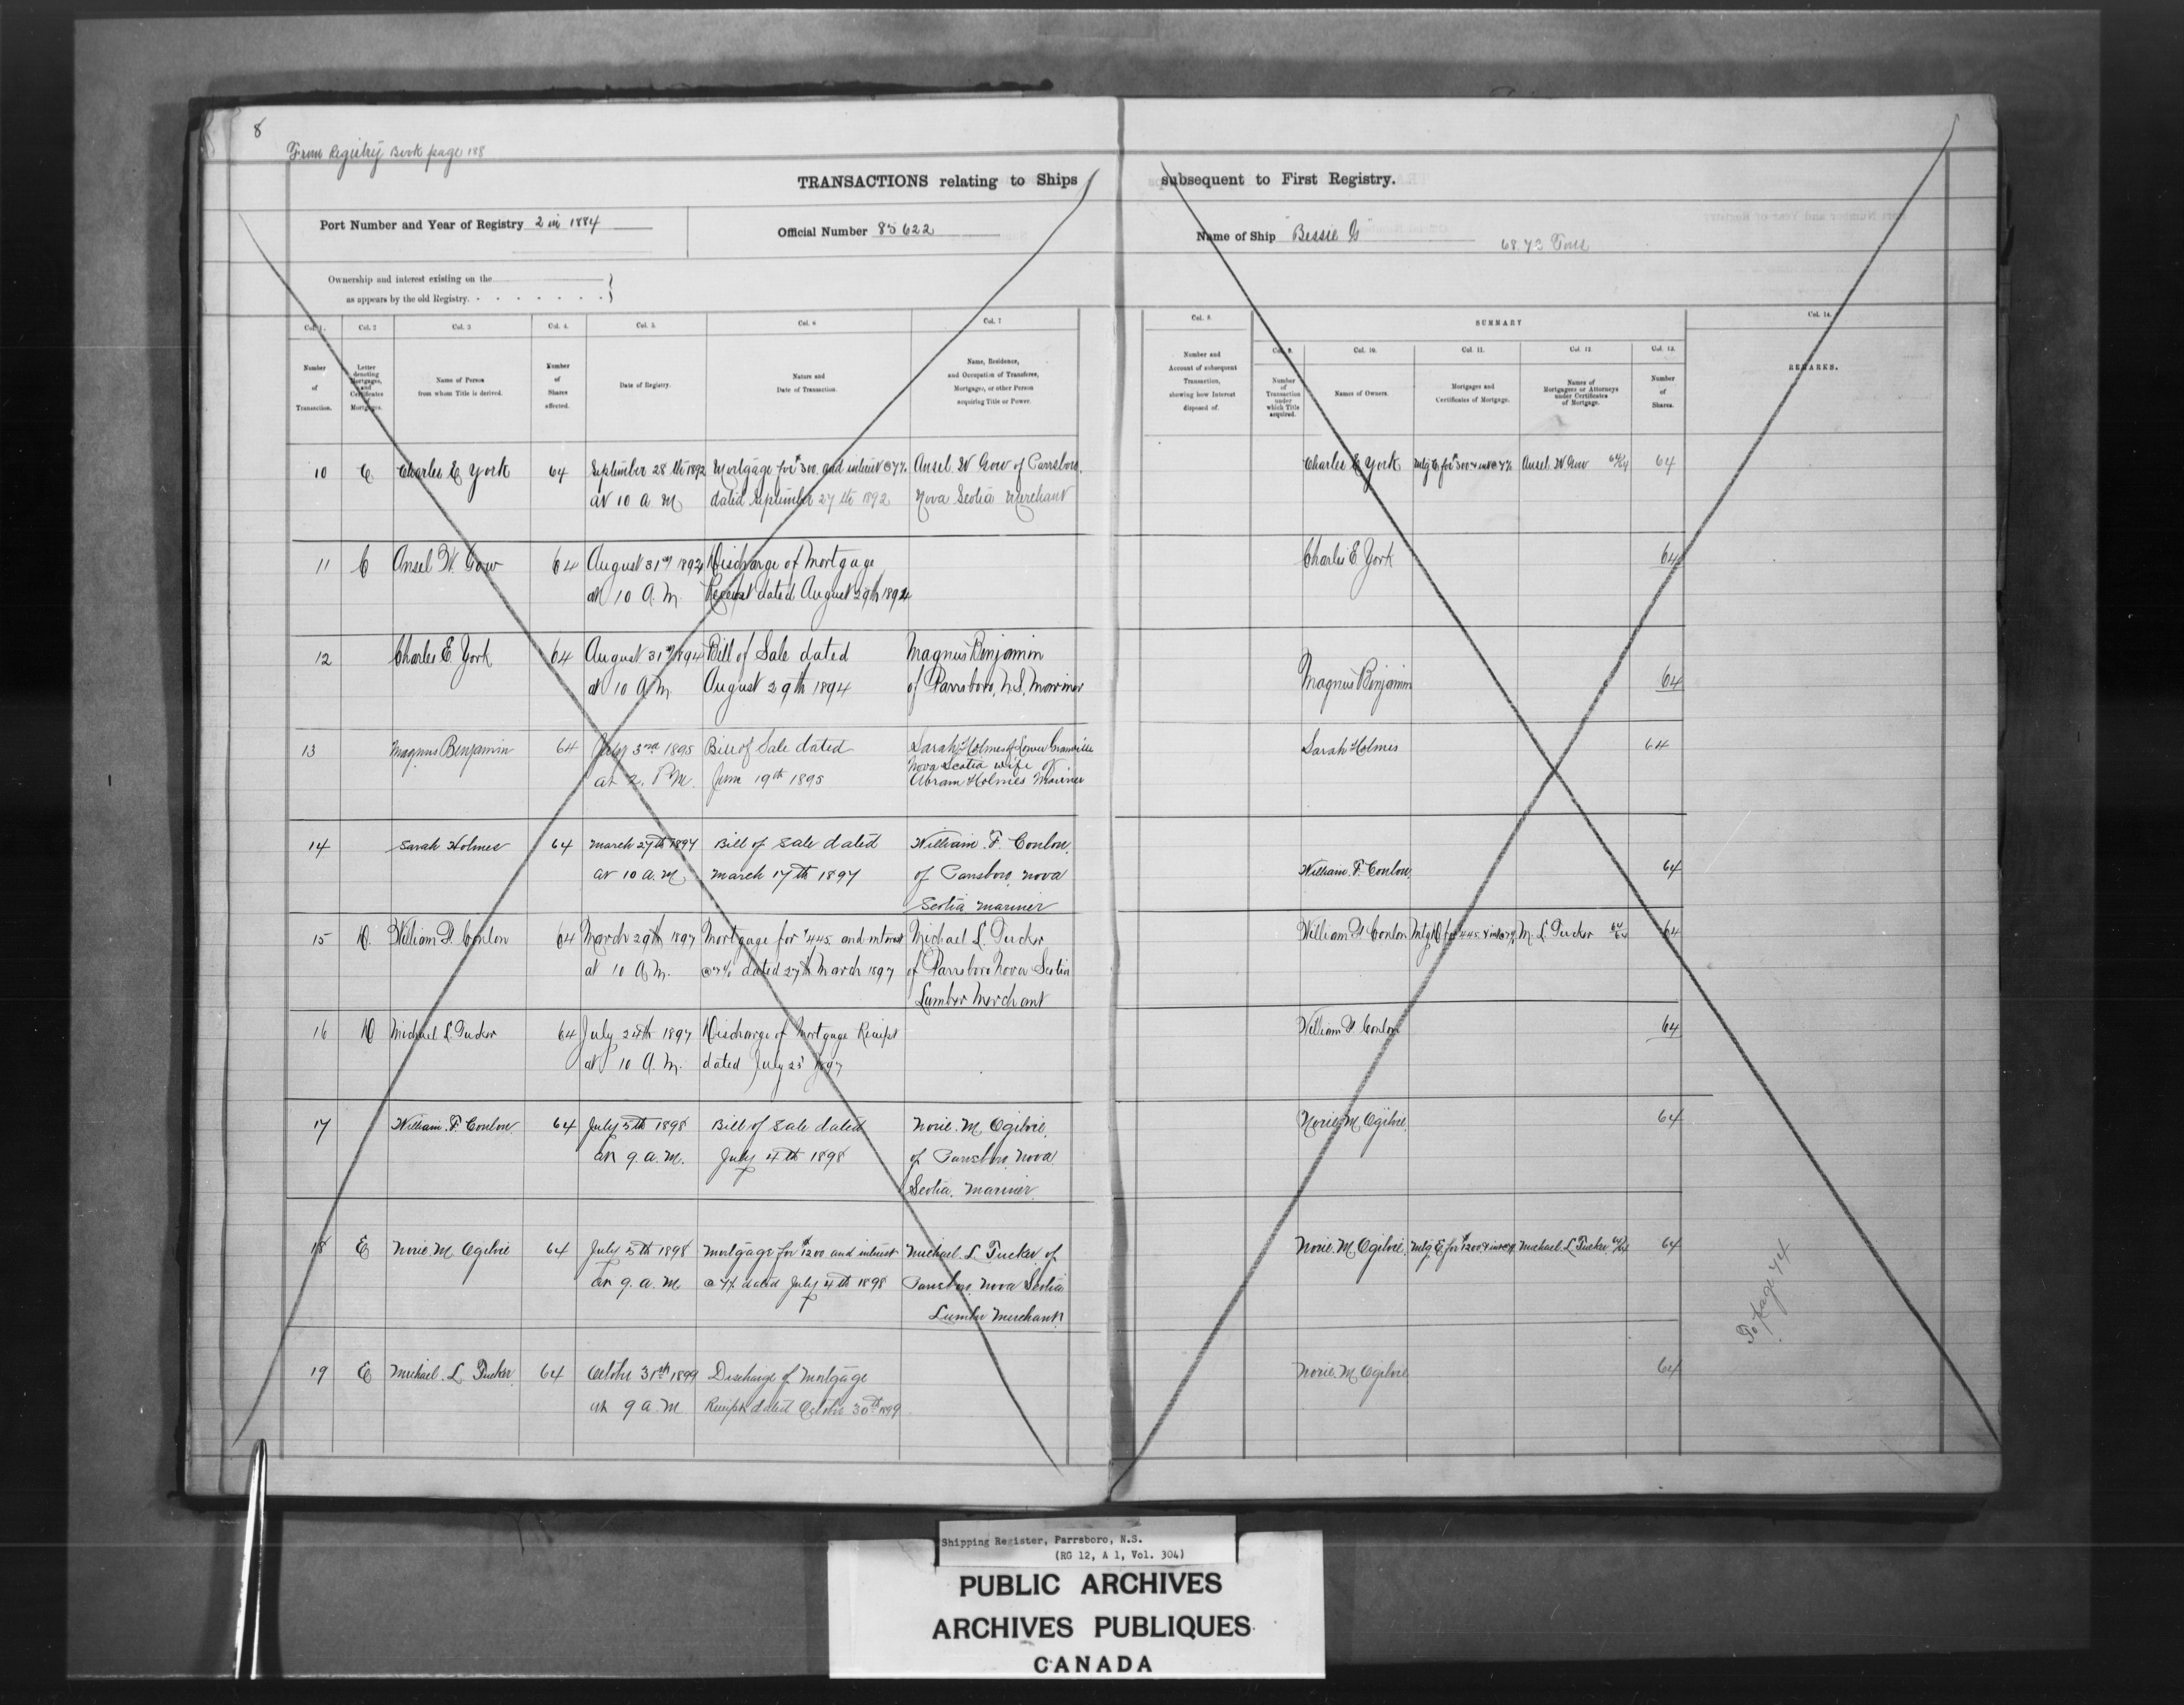 8
From Registry Book page 188
TRANSACTIONS relating to Ships subsequent to First Registry.
Port Number and Year of Registry 2 in 1884
Official Number 85622
Name of Ship "Bessie G"
68.73 Tons
Ownership and interest existing on the
as appears by the old Registry.
Col. 1. Col. 2 Col. 3 Col. 4. Col. 5. Col. 6 Col. 7 Col. 8. SUMMARY Col. 14.
Col. 9. Col. 10. Col. 11. Col. 12 Col. 13.
Number of Transaction.
Letter denoting Mortgages, and Certificates of Mortgages.
Name of Person from whom Title is derived.
Number of Shares affected.
Date of Registry.
Nature and Date of Transaction.
Name, Residence, and Occupation of Transferee, Mortgagee, or other Person acquiring Title or Power.
Number and Account of subsequent Transaction, showing how Interest disposed of.
Number of Transaction under which Title acquired.
Names of Owners.
Mortgages and Certificates of Mortgage.
Names of Mortgagees or Attorneys under Certificates of Mortgage.
Number of Shares.
REMARKS.
10 C Charles E York 64 September 28th 1892 Mortgage for $300 and interest @ 7% Ansel W Gow of Parrsboro, Charles E York Mtg C for $300 & int @ 7% Ansel W Gow 64/64 64
at 10 a m dated September 27th 1892 Nova Scotia Merchant
11 C Ansel W. Gow 64 August 31st 1894 Discharge of Mortgage Charles E York 64
at 10 A.M. Receipt dated August 29th 1894
12 Charles E. York 64 August 31st 1894 Bill of Sale dated Magnus Benjamin
at 10 A.M. August 29th 1894 of Parrsboro, N.S. Mariner Magnus Benjamin 64
13 Magnus Benjamin 64 July 3rd 1895 Bill of Sale dated Sarah Holmes of Lower Granville Sarah Holmes 64
Nova Scotia wife of
at 2. P.M. June 19th 1895 Abram Holmes Mariner
14 Sarah Holmes 64 March 27th 1897 Bill of Sale dated William. F. Conlon.
at 10 a.m March 17th 1897 of Parrsboro, Nova William. F. Conlon. 64
Scotia Mariner
15 D. William F. Conlon 64 March 29th 1897 Mortgage for $445. and interest Michael L. Tucker William F Conlon Mtg D for $445. & int @ 7% M. L Tucker 64/64 64
at 10 A.M. @ 7% dated 27th March 1897 of Parrsboro Nova Scotia
Lumber Merchant
16 D Michael L. Tucker 64 July 24th 1897 Discharge of Mortgage Receipt William F Conlon 64
at 10 A.M. dated July 23rd 1897
17 William. F. Conlon. 64 July 5th 1898 Bill of Sale dated Norie. M. Ogilvie. Norie. M. Ogilvie. 64
at 9. a.m. July 4th 1898 of Parrsboro, Nova
Scotia. Mariner.
18 E Norie. M. Ogilvie 64 July 5th 1898 Mortgage for $1200 and interest Michael. L Tucker of Norie. M. Ogilvie. Mtg. E for $1200 & int @ 7% Michael. L. Tucker 64/64 64
at 9. a. m @ 7%. dated July 4th 1898 Parrsboro, Nova Scotia
Lumber Merchant.
To page 74
19 E Michael. L. Tucker. 64 October 31st 1899 Discharge of Mortgage Norie. M. Ogilvie. 64
at 9 a.m Receipt dated October 30th 1899
Shipping Register, Parrsboro, N.S.
(RG 12, A 1, Vol. 304)
PUBLIC ARCHIVES
ARCHIVES PUBLIQUES
CANADA